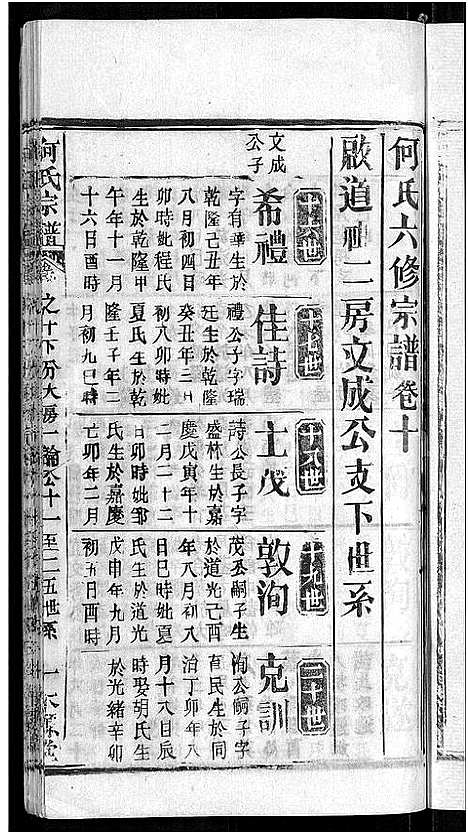 何氏六修宗譜卷十
啟道祖二房文成公支下世系
文成
公子
希禮
字有華生於
乾隆己丑年
八月初四日
卯時妣程氏
生於乾隆甲
午年十一月
十六日酉時
佳詩
禮公子字瑞
廷生於乾隆
癸丑年三月
初八卯時妣
夏氏生於乾
隆壬子年三
月初九巳時
十八世
士茂
詩公長子字
盛林生於嘉
慶戊寅年十
二月二十二
日卯時妣鄒
氏生於嘉慶
己卯年二月
十九世
敦洵
茂公嗣子生
於道光己酉
年八月初六
日巳時妣夏
氏生於道光
戊申年九月
初五日酉時
二十世
克訓
洵公嗣子字
直民生於同
治丁卯年八
月十八日辰
時娶胡氏生
於光緒辛卯
何氏宗譜
卷之十下分大房一瀚公十一至二五世系
一